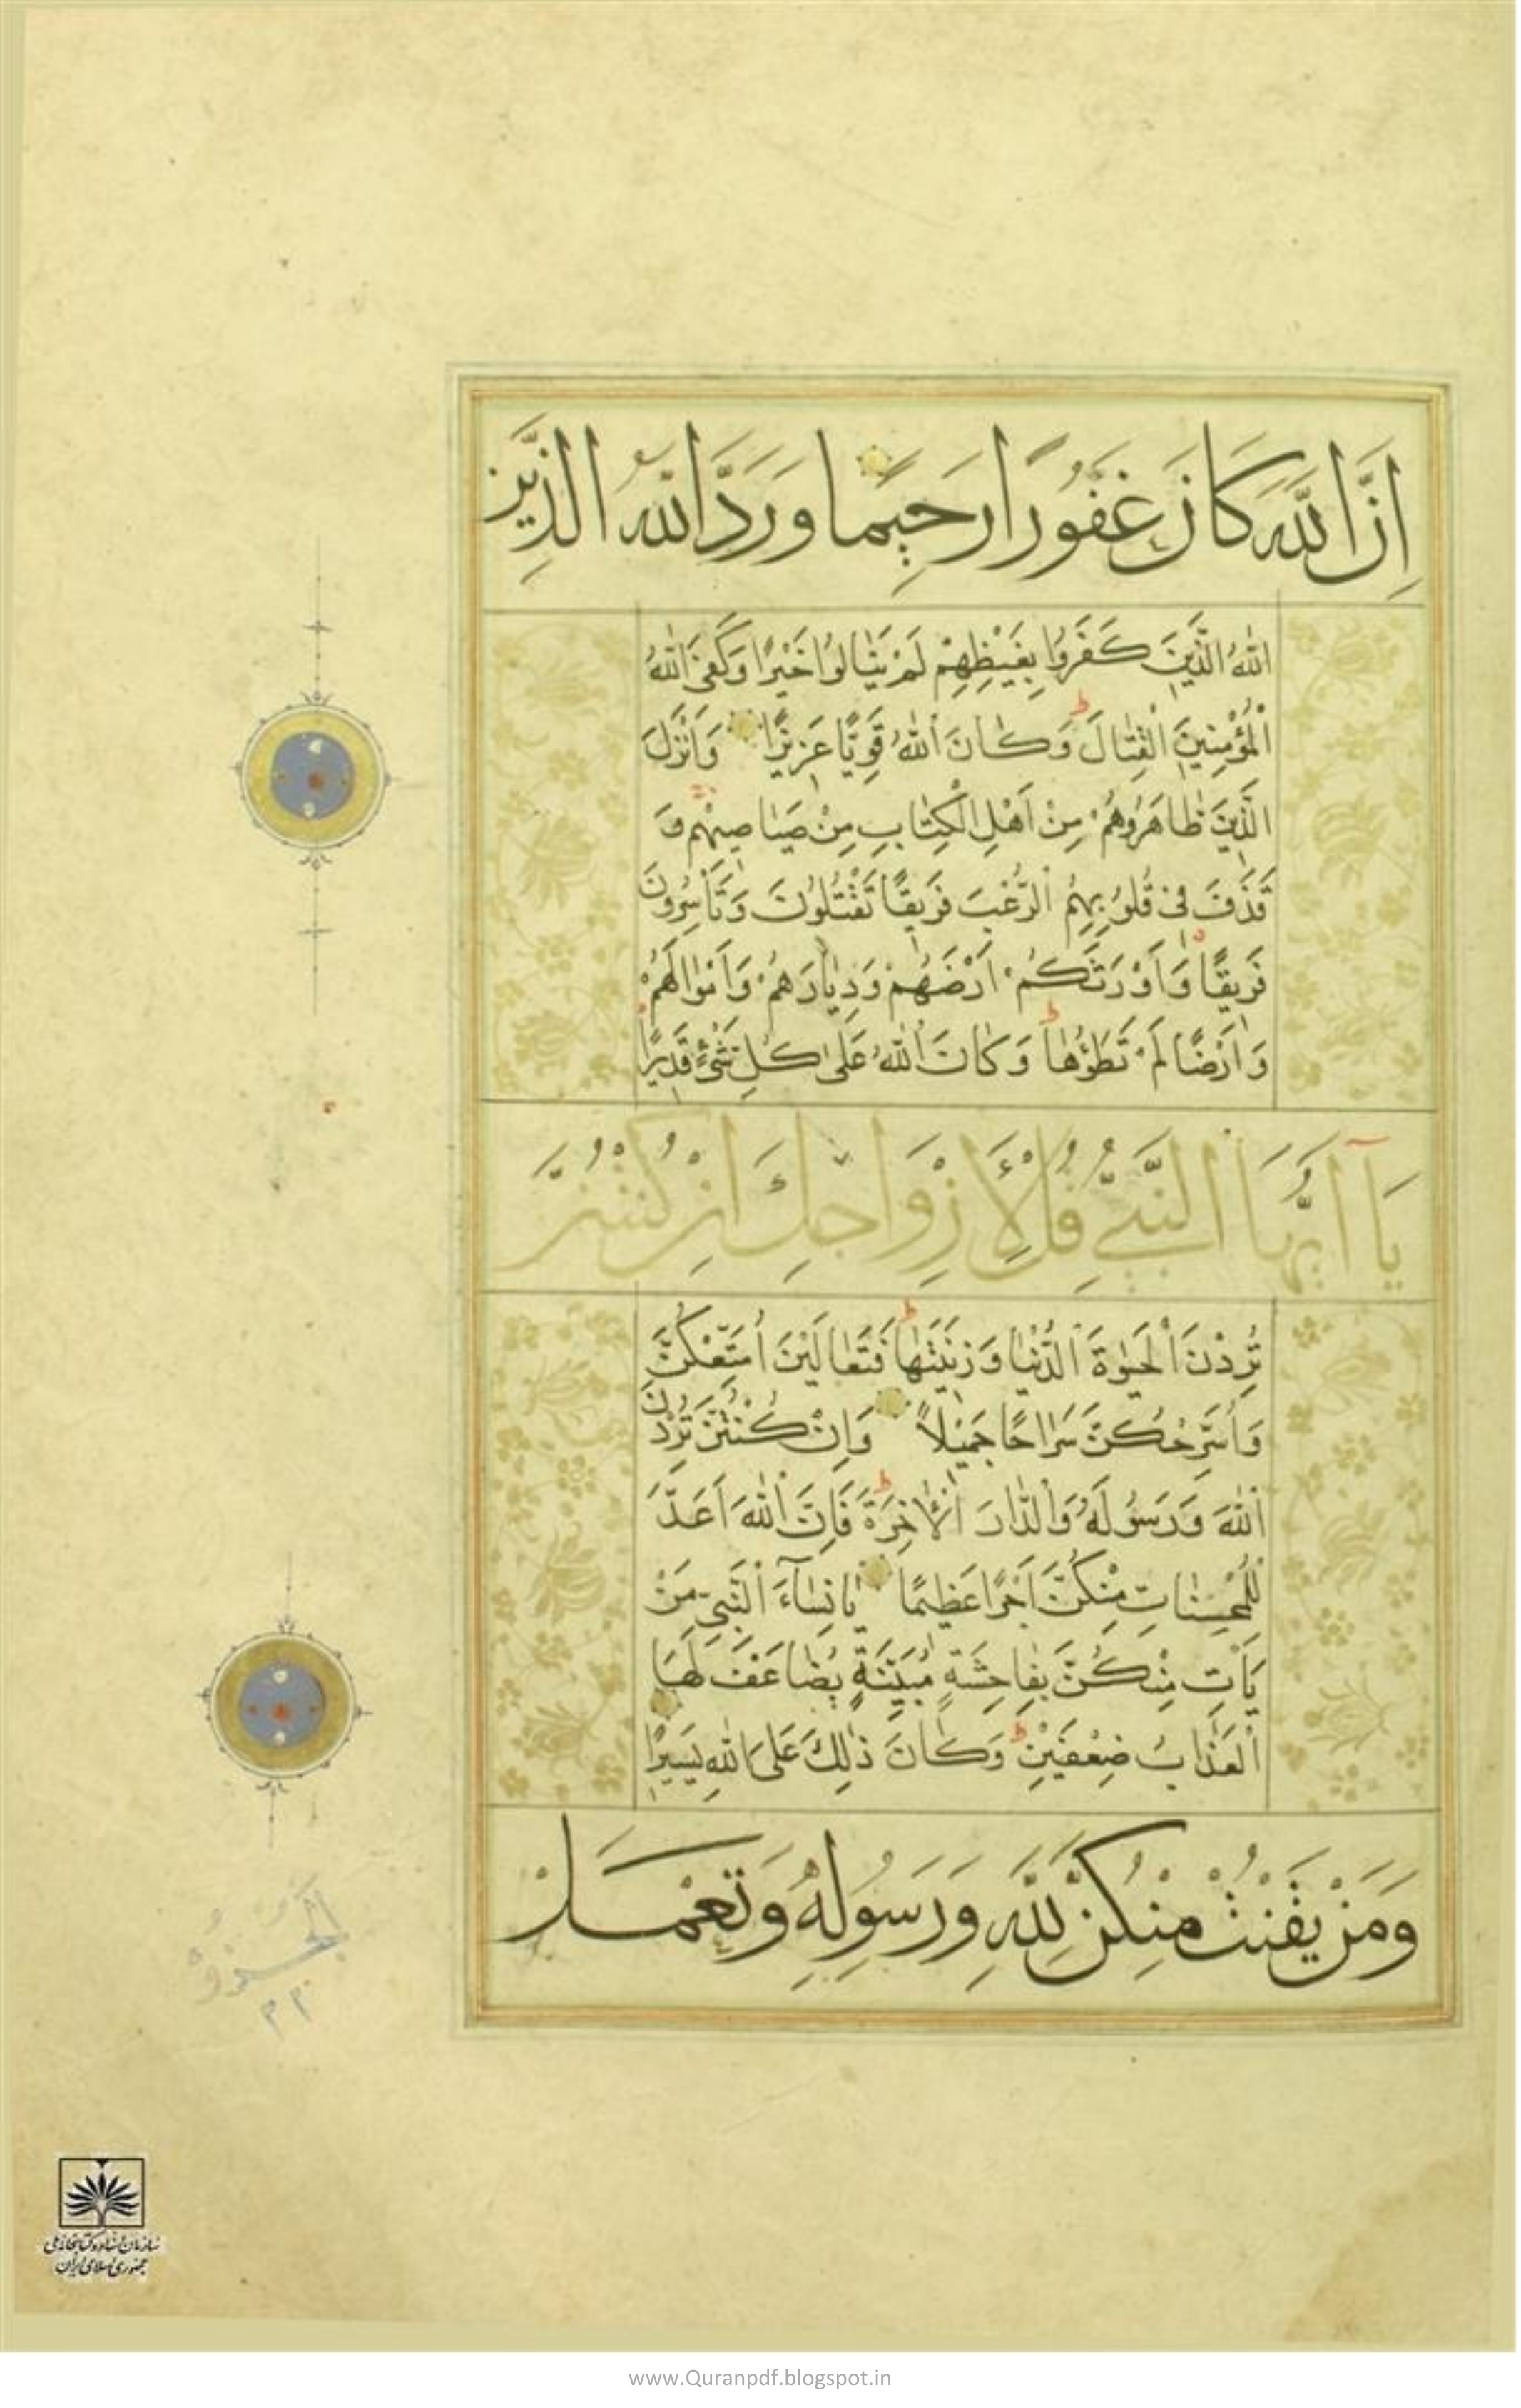 اِنَّ اللّٰهَ كَانَ غَفُورًا رَحِيمًا وَرَدَّ اللّٰهُ الَّذِينَ
اللّٰهُ الَّذِينَ كَفَرُوا بِغَيْظِهِمْ لَمْ يَنَالُوا خَيْرًا وَكَفَى اللّٰهُ
الْمُؤْمِنِينَ الْقِتَالَ وَكَانَ اللّٰهُ قَوِيًّا عَزِيزًا وَاَنْزَلَ
الَّذِينَ ظَاهَرُوهُمْ مِنْ اَهْلِ الْكِتَابِ مِنْ صَيَاصِيهِمْ وَ
قَذَفَ فِي قُلُوبِهِمُ الرُّعْبَ فَرِيقًا تَقْتُلُونَ وَتَأْسِرُونَ
فَرِيقًا وَاَوْرَثَكُمْ اَرْضَهُمْ وَدِيَارَهُمْ وَاَمْوَالَهُمْ
وَاَرْضًا لَمْ تَطَؤُهَا وَكَانَ اللّٰهُ عَلٰى كُلِّ شَيْءٍ قَدِيرًا
يَا اَيُّهَا النَّبِيُّ قُلْ لِاَزْوَاجِكَ اِنْ كُنْتُنَّ
تُرِدْنَ الْحَيٰوةَ الدُّنْيَا وَزِينَتَهَا فَتَعَالَيْنَ اُمَتِّعْكُنَّ
وَاُسَرِّحْكُنَّ سَرَاحًا جَمِيلًا وَاِنْ كُنْتُنَّ تُرِدْنَ
اللّٰهَ وَرَسُولَهُ وَالدَّارَ الْاٰخِرَةَ فَاِنَّ اللّٰهَ اَعَدَّ
لِلْمُحْسِنَاتِ مِنْكُنَّ اَجْرًا عَظِيمًا يَا نِسَاءَ النَّبِيِّ مَنْ
يَأْتِ مِنْكُنَّ بِفَاحِشَةٍ مُبَيِّنَةٍ يُضَاعَفْ لَهَا
الْعَذَابُ ضِعْفَيْنِ وَكَانَ ذٰلِكَ عَلَى اللّٰهِ يَسِيرًا
وَمَنْ يَقْنُتْ مِنْكُنَّ لِلّٰهِ وَرَسُولِهِ وَتَعْمَلْ
الجزؤ
٢٢
سازمان اسناد و کتابخانه ملی
جمهوری اسلامی ایران
www.Quranpdf.blogspot.in